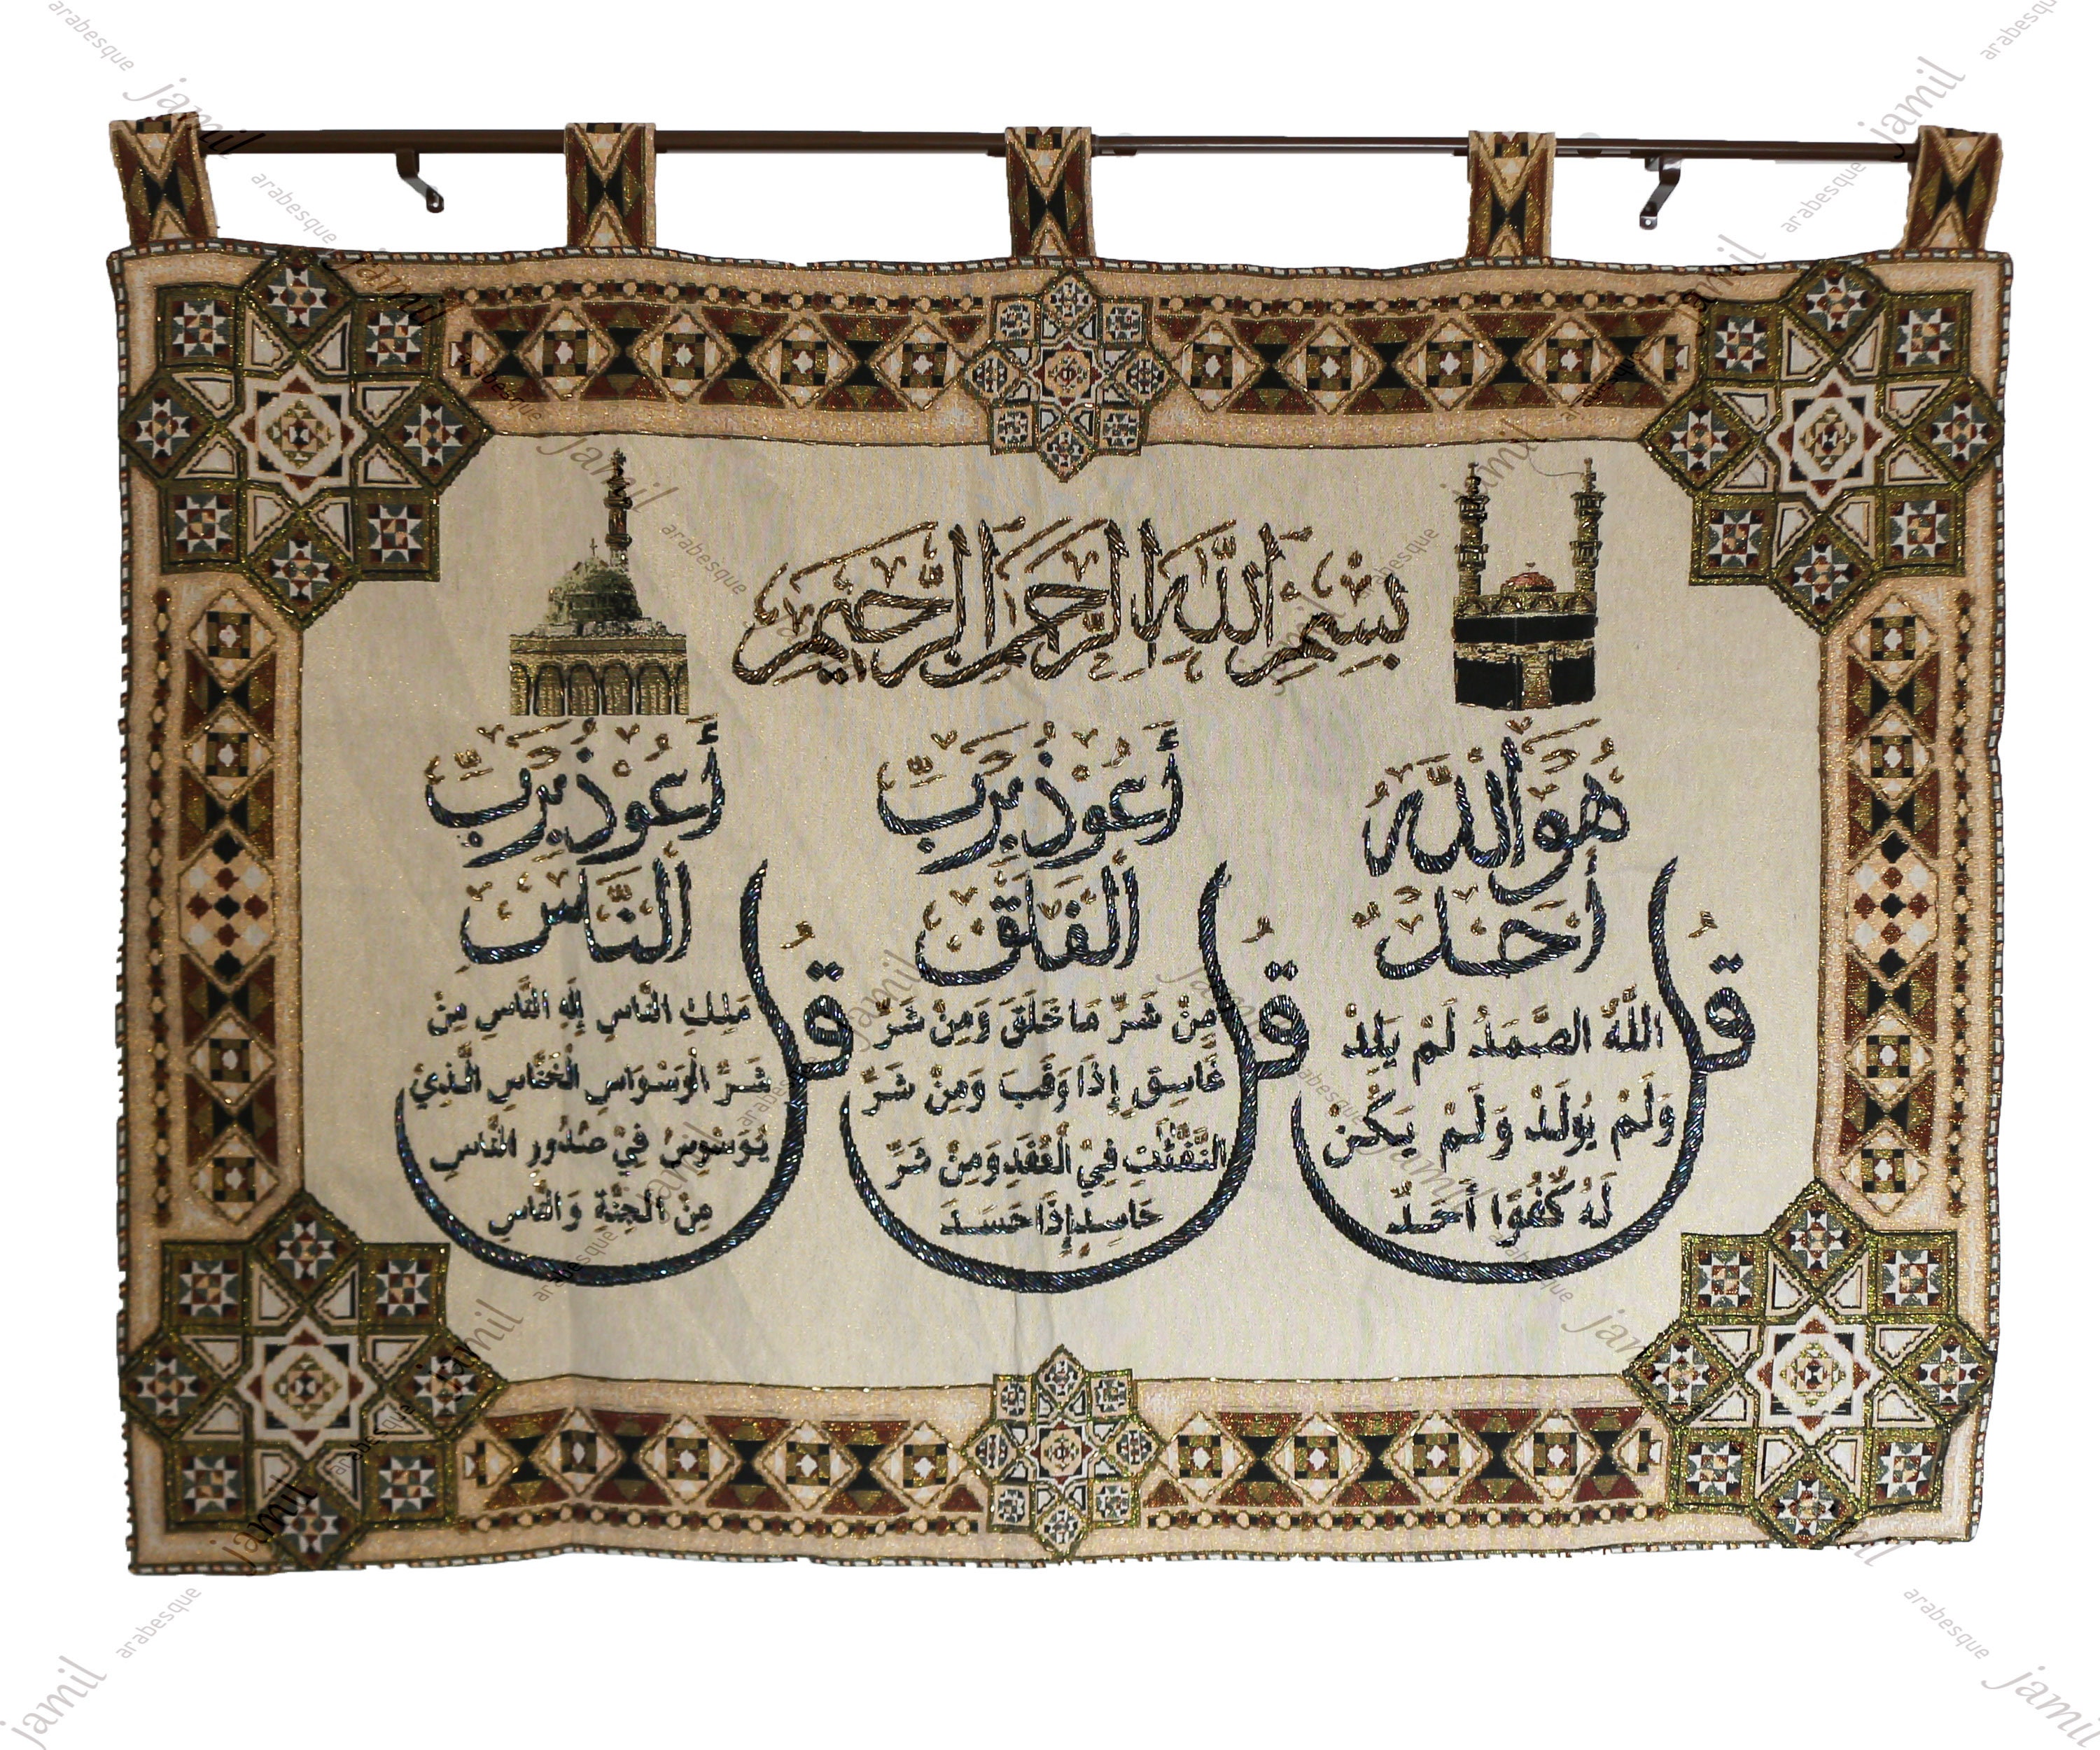 بِسْمِ اللَّهِ الرَّحْمَنِ الرَّحِيمِ
قُلْ هُوَ اللَّهُ
أَحَدٌ
اللَّهُ الصَّمَدُ لَمْ يَلِدْ
وَلَمْ يُولَدْ وَلَمْ يَكُنْ
لَهُ كُفُوًا أَحَدٌ
قُلْ أَعُوْذُ بِرَبِّ
الْفَلَقِ
مِنْ شَرِّ مَا خَلَقَ وَمِنْ شَرِّ
غَاسِقٍ إِذَا وَقَبَ وَمِنْ شَرِّ
النَّفّٰثٰتِ فِيْ الْعُقَدِ وَمِنْ شَرِّ
حَاسِدٍ إِذَا حَسَدَ
قُلْ أَعُوْذُ بِرَبِّ
النَّاسِ
مَلِكِ النَّاسِ إِلَهِ النَّاسِ مِنْ
شَرِّ الْوَسْوَاسِ الْخَنَّاسِ الَّذِيْ
يُوَسْوِسُ فِيْ صُدُورِ النَّاسِ
مِنَ الْجِنَّةِ وَالنَّاسِ
jamil arabesque